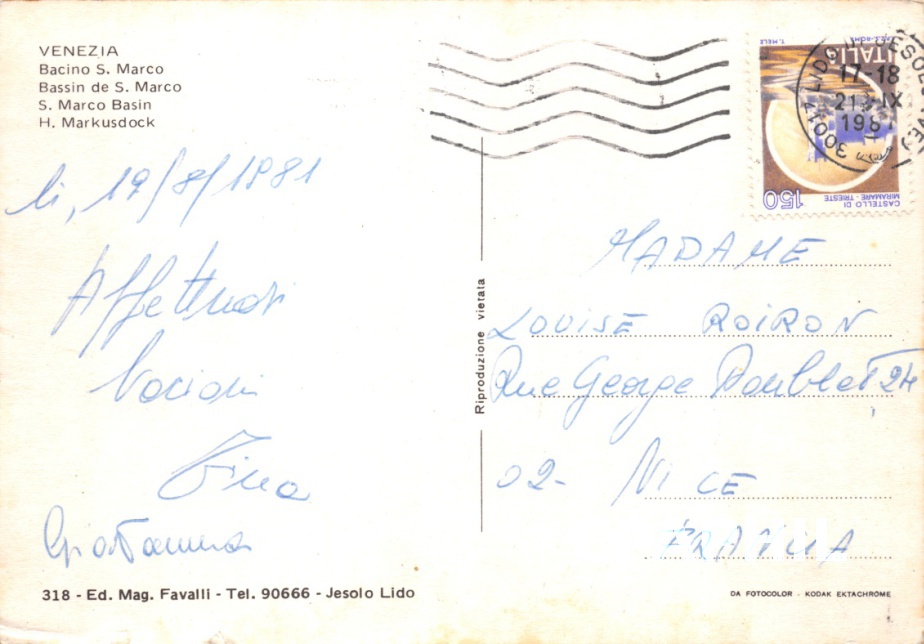 VENEZIA
Bacino S. Marco
Bassin de S. Marco
S. Marco Basin
H. Markusdock
li, 19/8/1981
Affettuosi
Tina
Giovanna
318 - Ed. Mag. Favalli - Tel. 90666 - Jesolo Lido
Riproduzione vietata
ITALIA
150
CASTELLO DI
MIRAMARE - TRIESTE
17-18
198
MADAME
LOUISE ROIRON
Rue George 24
02- NICE
FRANCIA
DA FOTOCOLOR - KODAK EKTACHROME